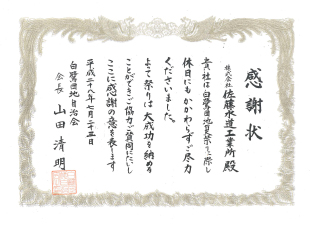 感謝状
株式会社 佐藤水道工業所殿
貴社は白鷺団地夏祭りに際し
休日にもかかわらずご尽力
くださいました。
よって祭りは大成功を納める
ことができご協力ご賛同にたいし
ここに感謝の意を表します
平成二十八年七月二十三日
白鷺団地自治会
会長 山田清明